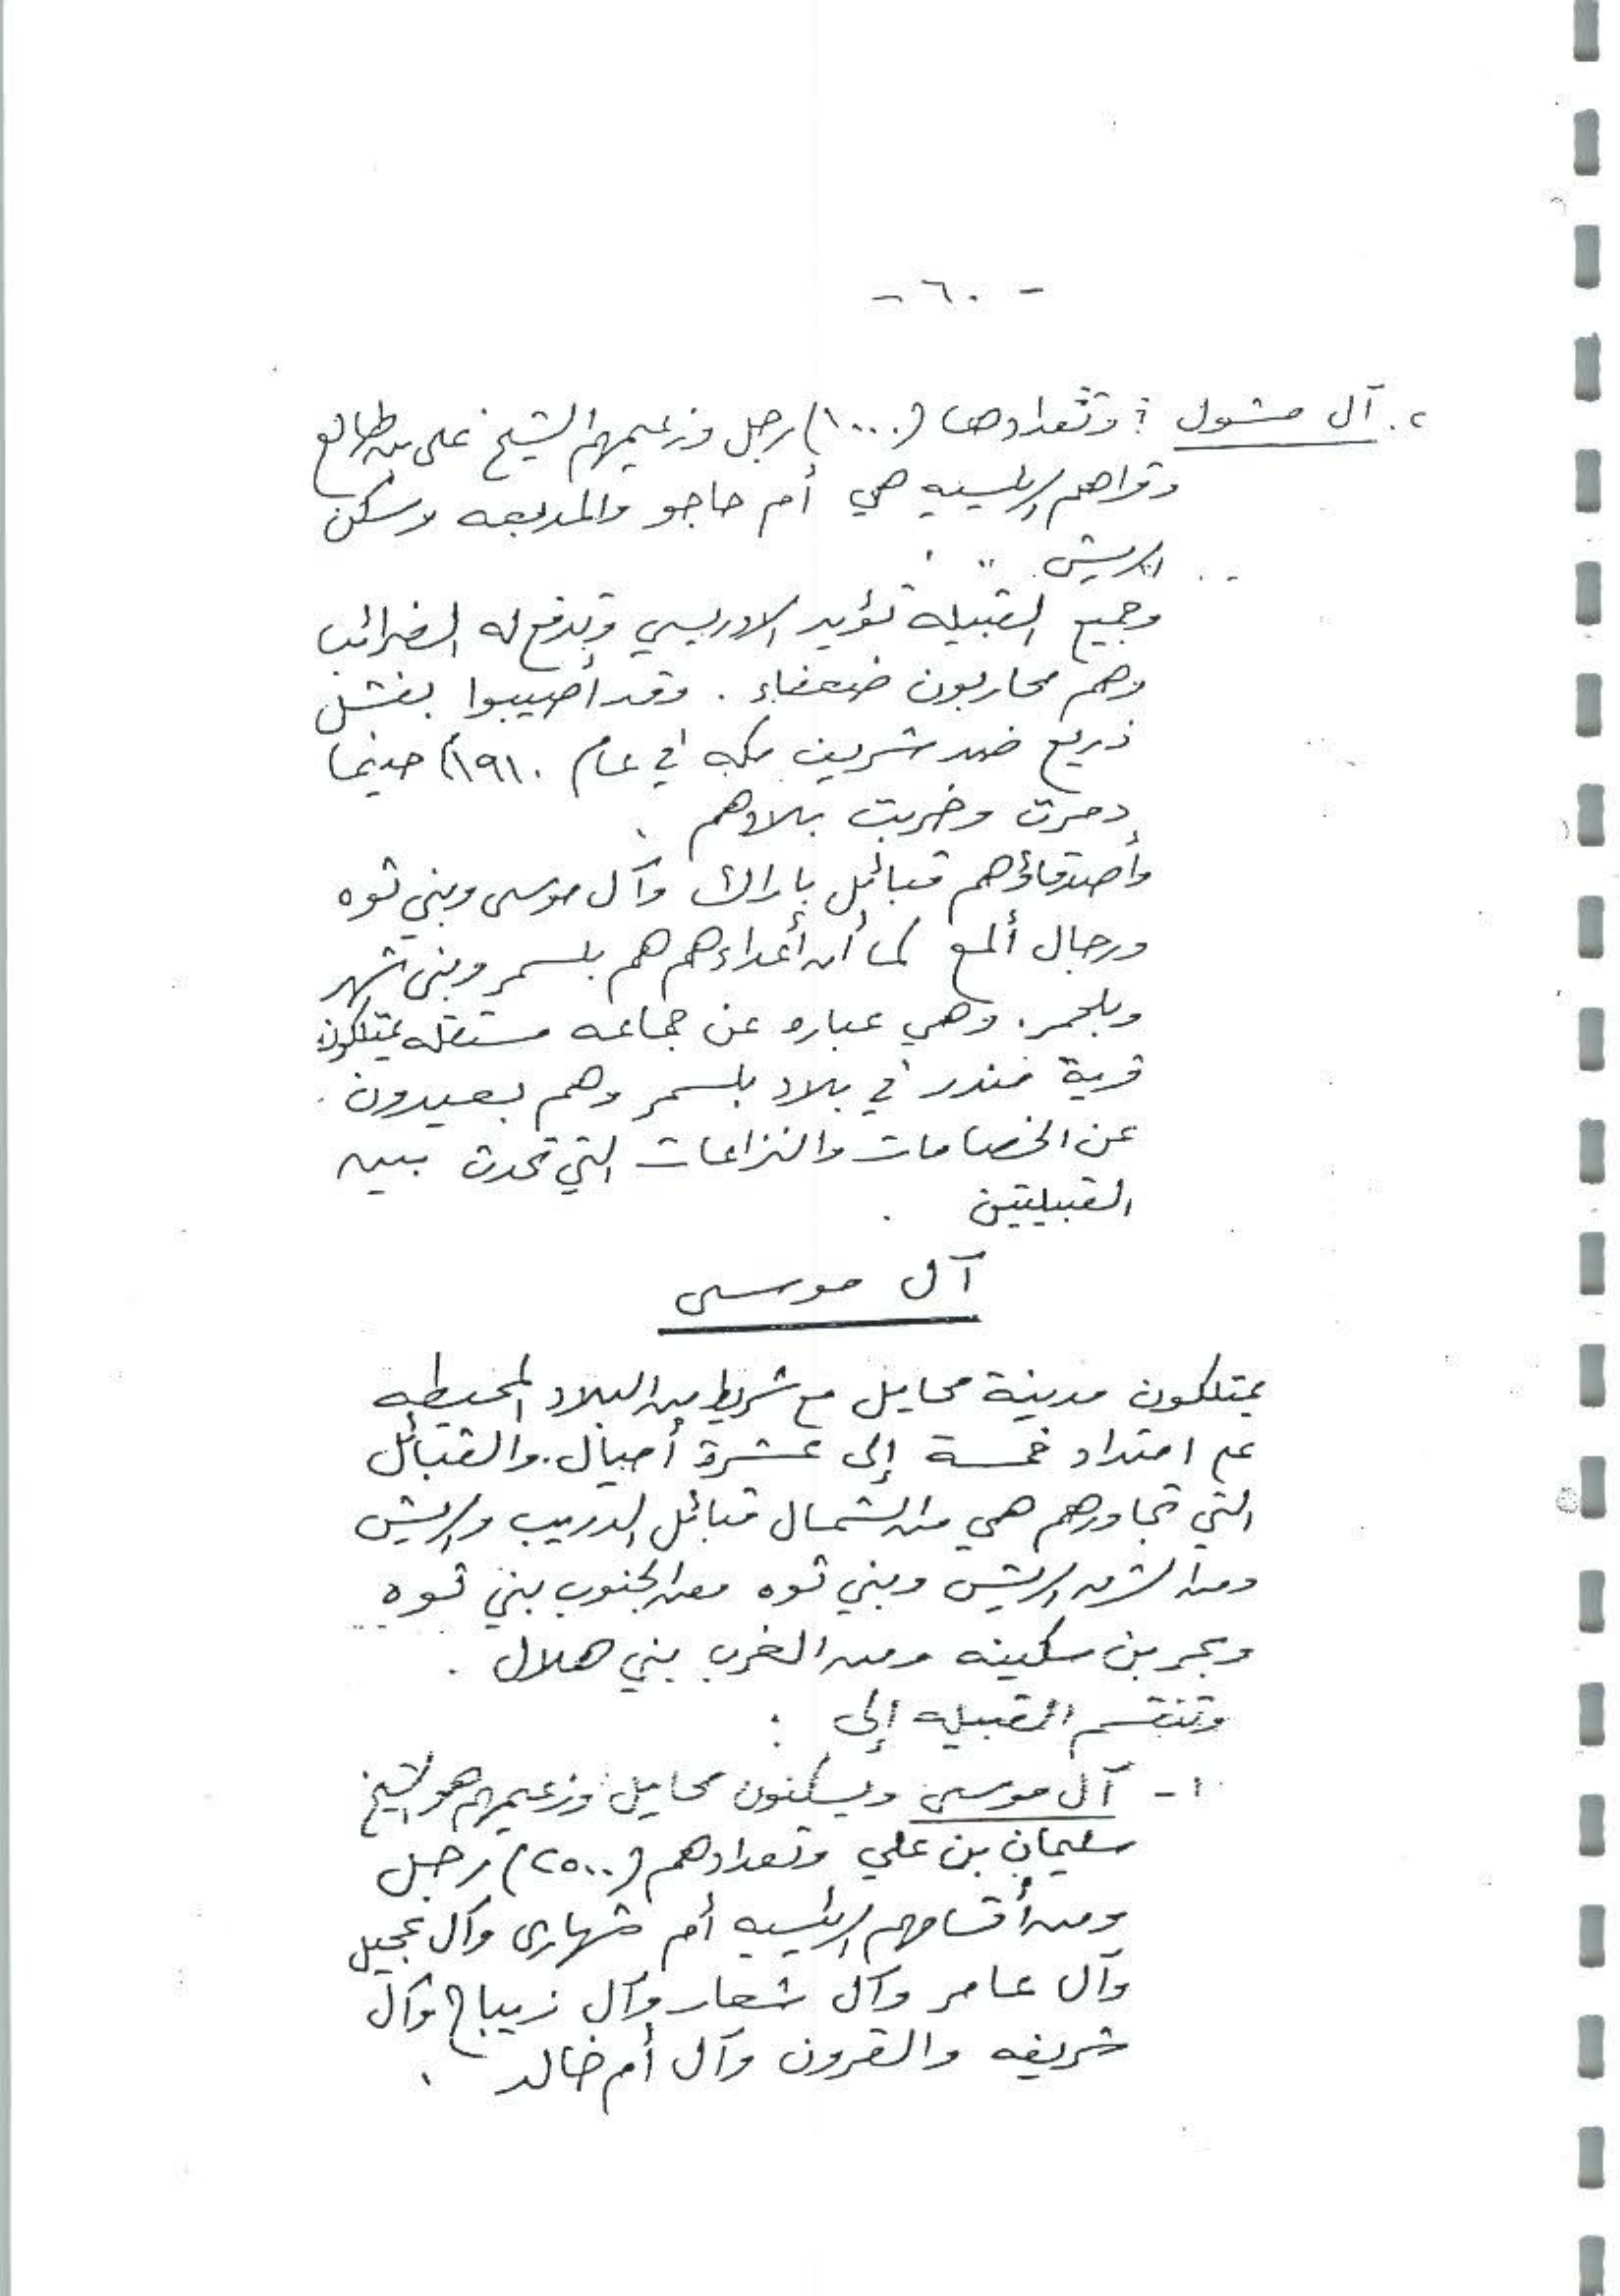 - ٦٠ -
٢. آل مشول : وتعدادها (١٠٠٠) رجل وزعيمهم الشيخ علي بن طالع
وقراهم الرئيسيه هي أم حاجو والمديعه وسكن
الريش .
وجميع القبيله تؤيد الادريسي وتدفع له الضرائب
وهم محاربون ضعفاء . وقد أصيبوا بفشل
ذريع ضد شريف مكه في عام ١٩١٠م حينما
دمرت وخربت بلادهم .
وأصدقاؤهم قبائل باراك وآل موسى وبني ثوه
ورجال ألمع كما أن أعداءهم هم بلسمر وبني شهر
وبلحمر . وهي عباره عن جماعه مستقله يمتلكون
قرية مندر في بلاد بلسمر وهم بعيدون
عن الخصامات والنزاعات التي تحدث بين
القبيلتين .
آل موسى
يمتلكون مدينة محايل مع شريط من البلاد المحيطه
على امتداد خمسة إلى عشرة أميال . والقبائل
التي تجاورهم هي من الشمال قبائل الدريب والريش
ومن الشرق الريش وبني ثوه ومن الجنوب بني ثوه
وبحر بن سكينه ومن الغرب بني هلال .
وتنقسم القبيله إلى :
١- آل موسى ويسكنون محايل وزعيمهم هو الشيخ
سليمان بن علي وتعدادهم (٢٥٠٠) رجل
ومن أقسامهم الرئيسيه أم شهاري وآل عجيل
وآل عامر وآل شعار وآل زيباح وآل
شريفه والقرون وآل أم خالد .